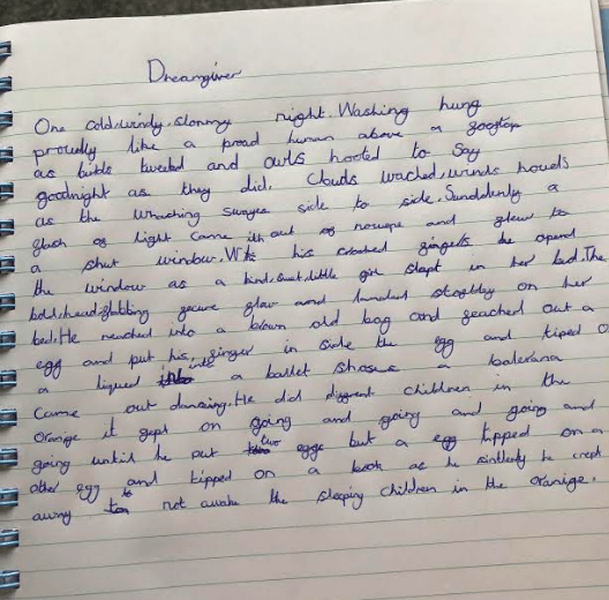 Dreamgiver
One cold,windy,stormy night. Washing hung
proudly like a proad human above a gooftop
as birds tweeted and owls hooted to say
goodnight as they did. Clouds wached,winds howls
as the whaching swayes side to side. Sunddenly a
glash of light came ith out of nowepe and glew to
a shut window. With his crooked gingers he opend
the window as a kind,sweet,little girl slept in her bed.The
bold,head, gecure glow and landed on her
bed.He reached into a brown old bag and geached out a
egg and put his ginger in side the egg and tiped
a liqued into a ballet shose a balerana
came out dancing.He did diggrent children in the
oranige it gept on going and going and going and
going untill he put two eggs but a egg tipped on a
other egg and tipped on a book as he sintlently he crept
away to not awake the sleeping children in the oranige.